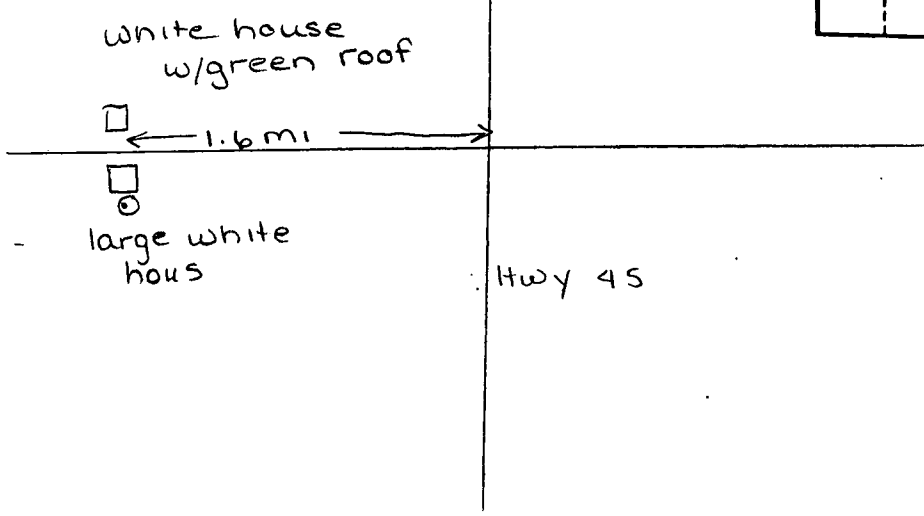 white house
w/green roof
1.6 mi
large white
hous
Hwy 45